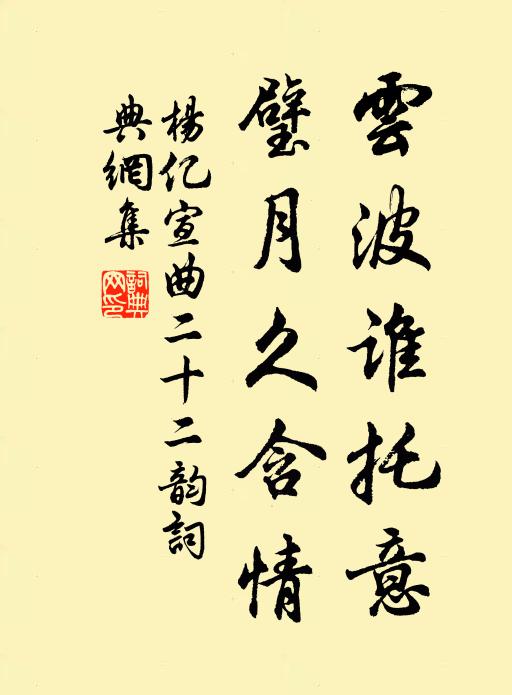 雲波谁托意
璧月久含情
楊亿宣曲二十二韵詞
典網集
詞典网印